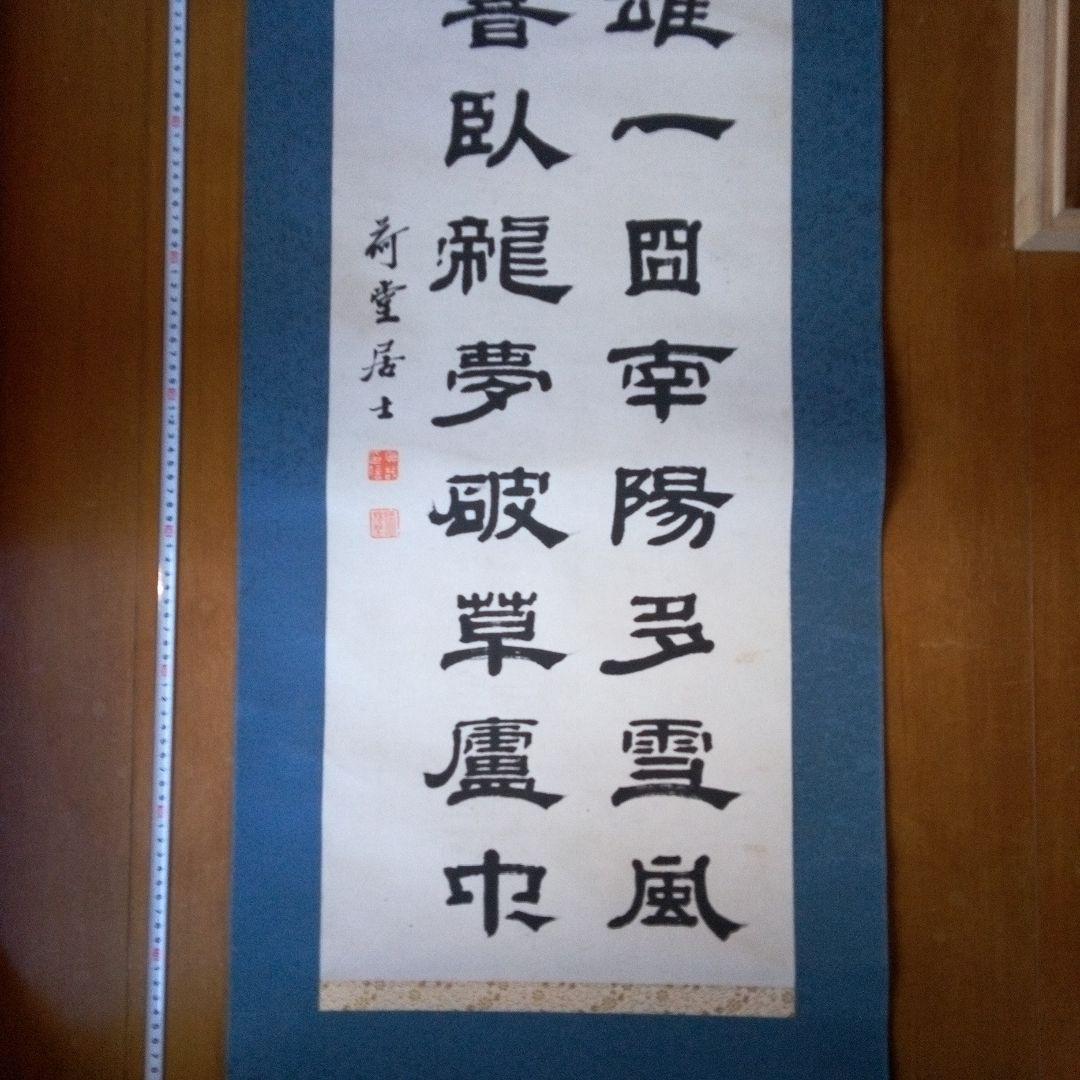 一囘南陽多雪風
臥龍夢破草廬中
荷堂居士